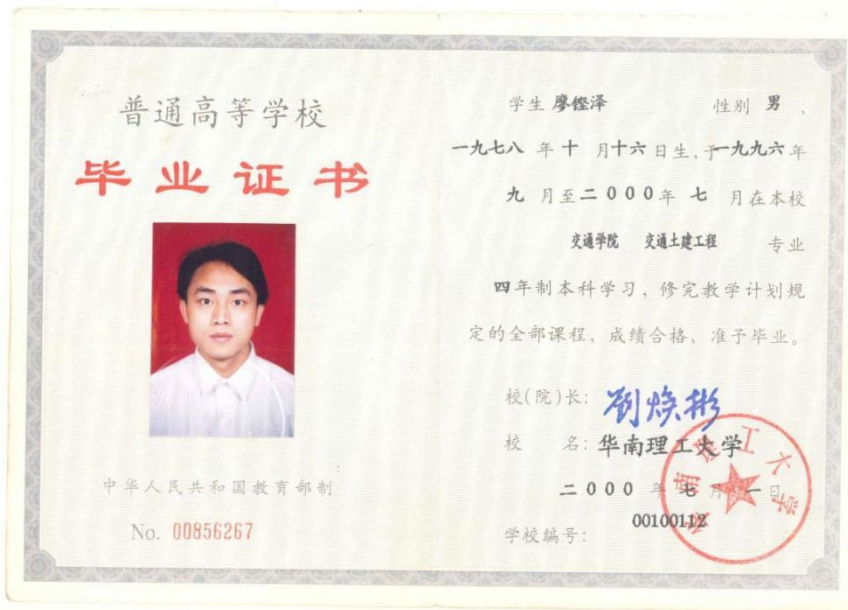 普通高等学校
毕业证书
中华人民共和国教育部制
No. 00856267
学生 廖铿泽 性别 男 ,
一九七八 年 十 月 十六 日生, 于 一九九六 年
九 月至 二000 年 七 月在本校
交通学院 交通土建工程 专业
四年制本科学习, 修完教学计划规
定的全部课程, 成绩合格, 准予毕业。
校(院)长: 劉焕彬
校 名: 华南理工大学
二000 年 七 月 一 日
学校编号: 00100112
华南理工大学